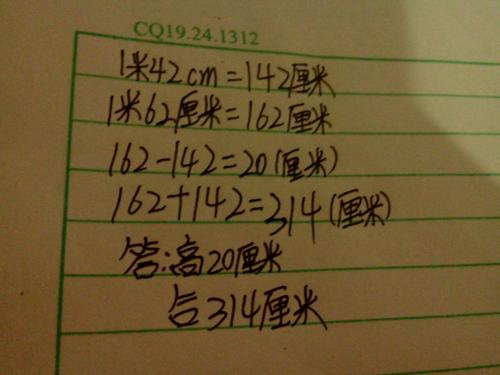 CQ19.24.1312
1米42cm=142厘米
1米62厘米=162厘米
162-142=20(厘米)
162+142=314(厘米)
答:高20厘米
314厘米